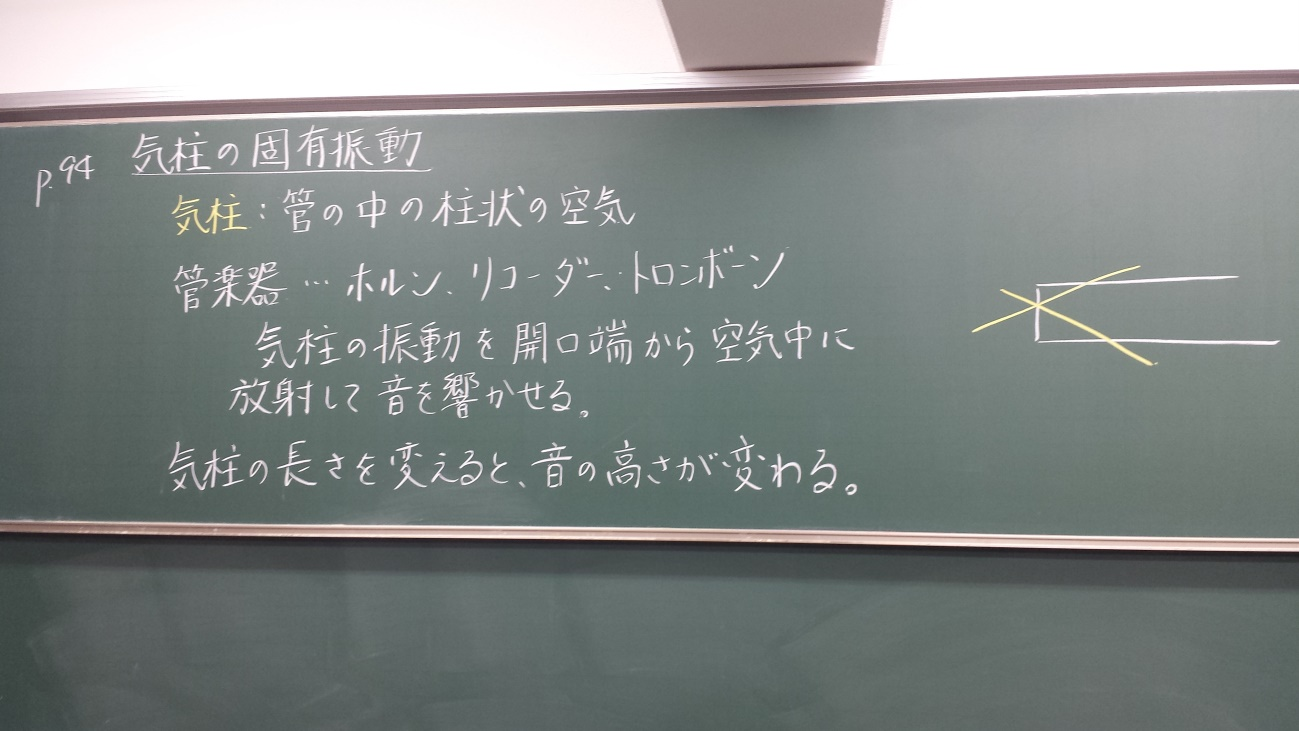 p.94 気柱の固有振動
気柱：管の中の柱状の空気
管楽器…ホルン、リコーダー、トロンボーン
気柱の振動を開口端から空気中に
放射して音を響かせる。
気柱の長さを変えると、音の高さが変わる。